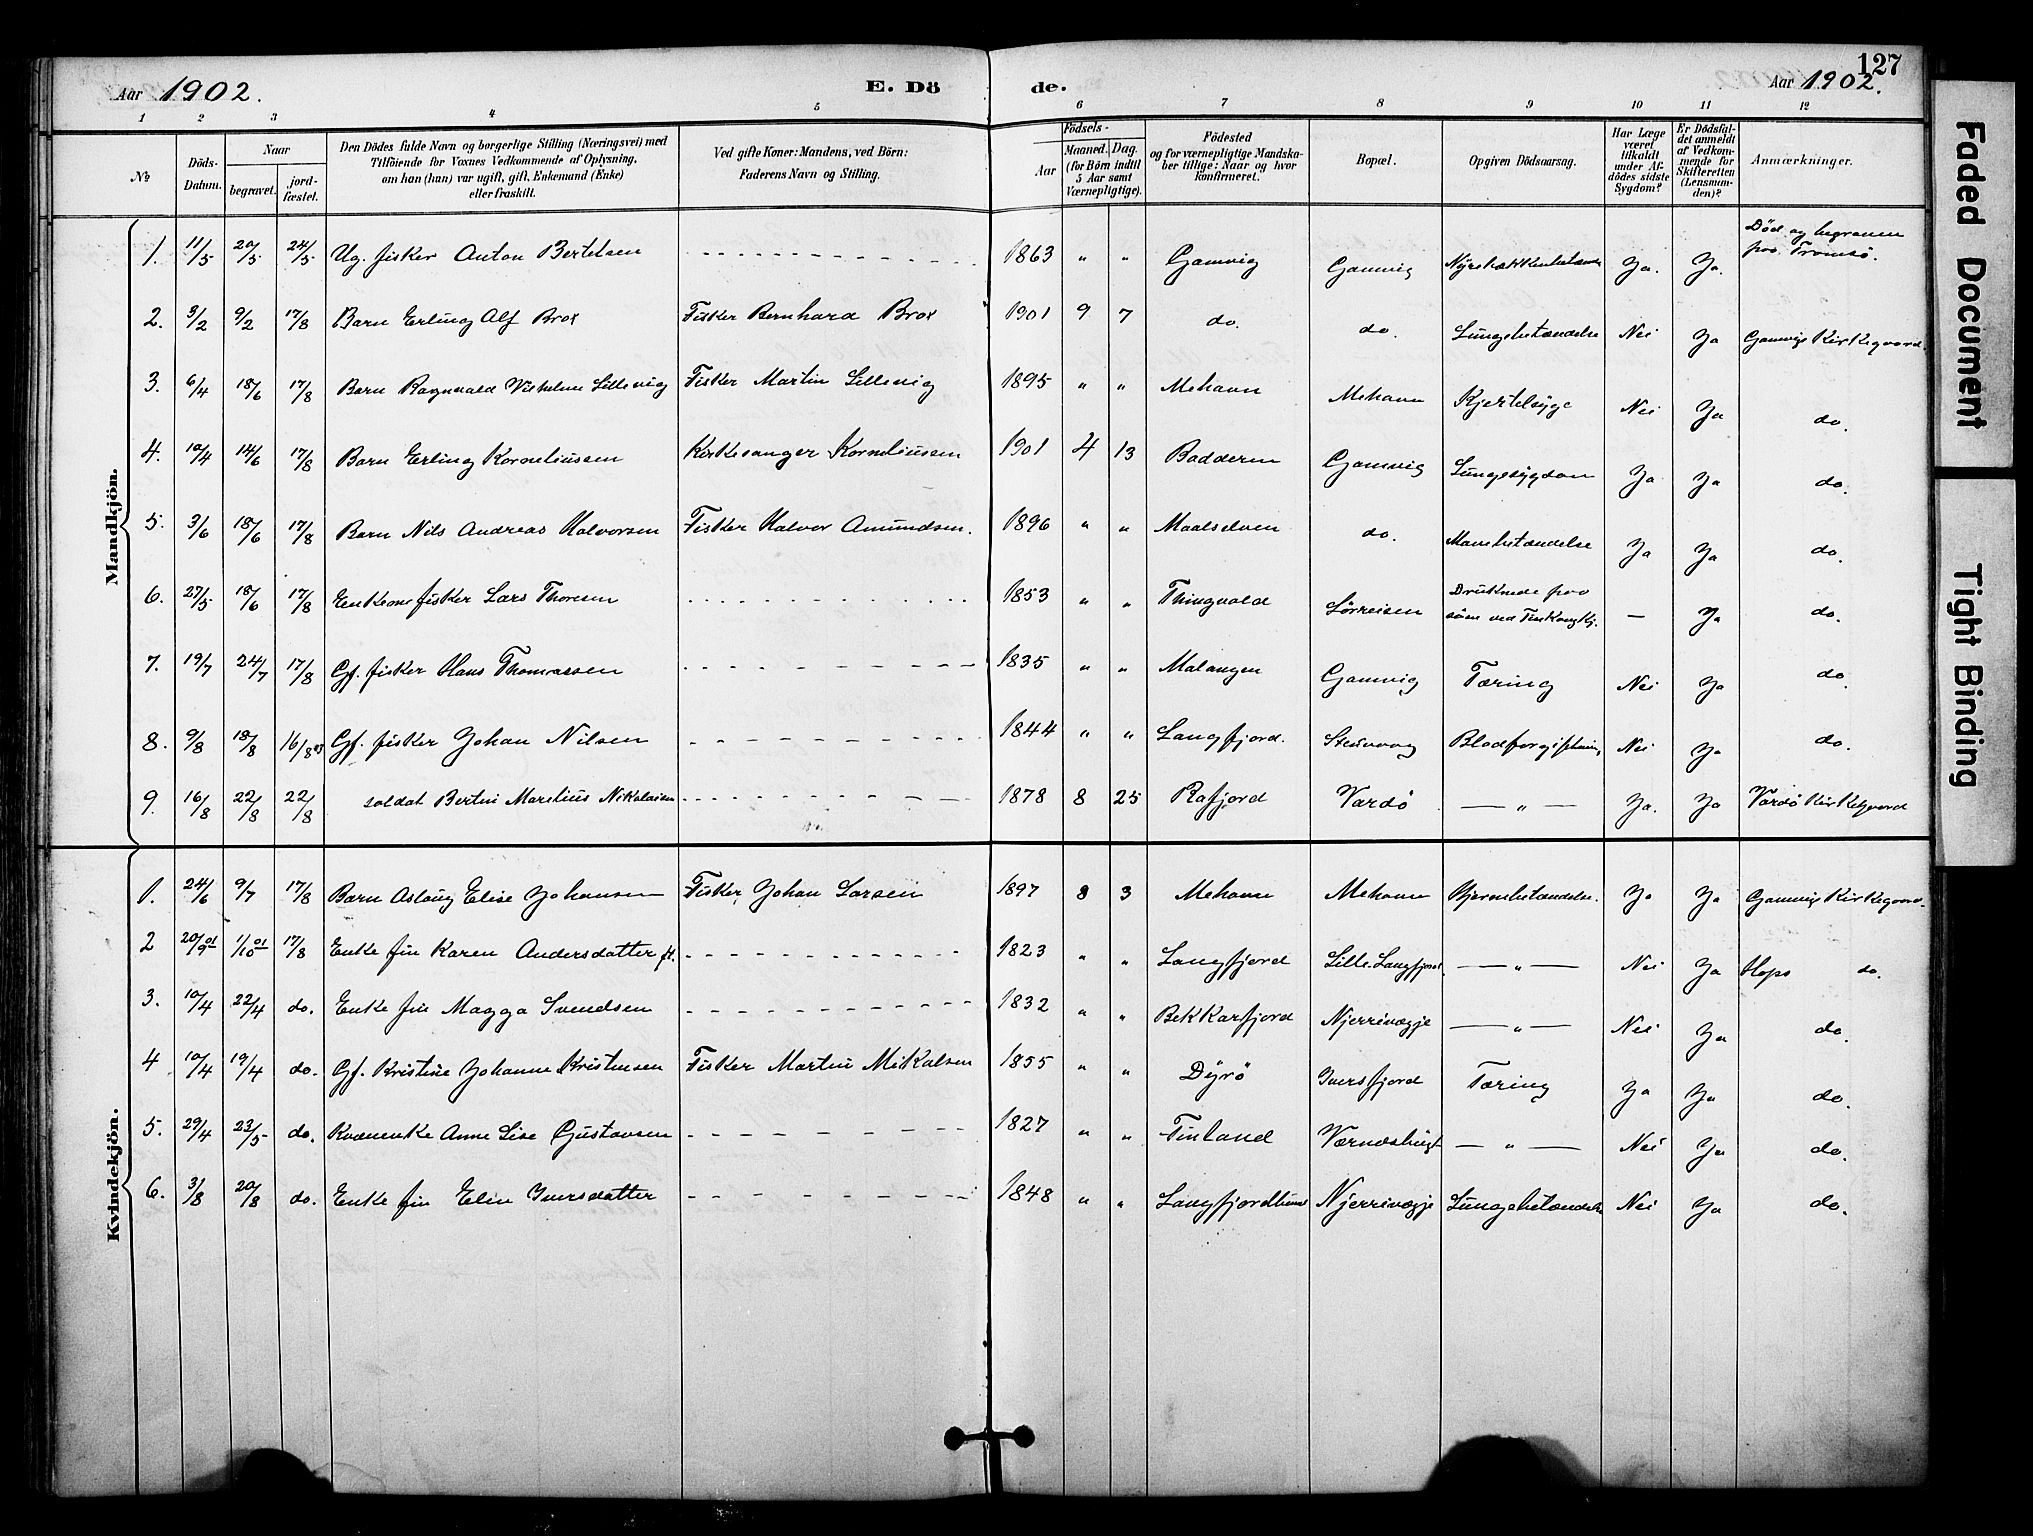 127
Aar 1902. E. Dö de. Aar 1902.
1 2 3 4 5 6 7 8 9 10 11 12
No
Döds-Datum.
Naar
begravet. jord-fæstet.
Den Dödes fulde Navn og borgerlige Stilling (Næringsvei) med
Tilföiende for Voxnes Vedkommende af Oplysning,
om han (hun) var ugift, gift, Enkemand (Enke)
eller fraskilt.
Ved gifte Koner: Mandens, ved Börn:
Faderens Navn og Stilling.
Födsels-
Aar
Maaned. Dag.
(for Börn indtil
5 Aar samt
Værnepligtige).
Födested
og for værnepligtige Mandska-
ber tillige: Naar og hvor
konfirmeret.
Bopæl.
Opgiven Dödsaarsag.
Har Læge
været
tilkaldt
under Af-
dödes sidste
Sygdom?
Er Dödsfal-
det anmeldt
af Vedkom-
mende for
Skifteretten
(Lensman-
den)?
Anmærkninger.
Mandkjön.
1. 11/5 20/5 24/5 Ug. fisker Anton Bertelsen 1863 " " Gamvig Gamvig Ja. Ja. Död og begraven paa Tromsö.
2. 3/2 9/2 17/8 Barn Erling Alf Brox Fisker Bernhard Brox 1901 9 7 do. do. Lungebetændelse Nei Ja Gamvigs Kirkegaard.
3. 6/4 18/6 17/8 Barn Ragnvald Vilhelm Lillevig Fisker Martin Lillevig 1895 " " Mehavn Mehavn Kjertelsyge Nei Ja do.
4. 10/4 14/6 17/8 Barn Erling Korneliussen Kirkesanger Korneliussen 1901 4 13 Badderen Gamvig Lungesygdom Ja Ja do.
5. 3/6 18/6 17/8 Barn Nils Andreas Halvorsen Fisker Halvor Amundsen. 1896 " " Maalselven do. Mavebetændelse Ja Ja do.
6. 27/5 18/6 17/8 Enkem fisker Lars Thoresen 1853 " " Thingvold Sörreisen Druknede paa söen ved Finkongkj. — Ja do.
7. 19/7 24/7 17/8 Gf. fisker Hans Thomassen 1835 " " Malangen Gamvig Tæring Nei Ja do.
8. 9/8 18/8 16/8 03 Gf. fisker Johan Nilsen 1844 " " Langfjord. Blodforgiftning Nei Ja do.
9. 16/8 22/8 22/8 soldat Bertin Marelius Nikolaisen 1878 8 25 Rafjord Vardö — " — Ja. Ja Vardö Kirkegaard
Kvindekjön.
1. 24/6 9/7 17/8 Barn Aslaug Elise Johansen Fisker Johan Larsen 1897 8 3 Mehavn Mehavn Hjernebetændelse. Ja Ja Gamvigs Kirkegaard.
2 20/9 01 1/10 01 17/8 Enke fin Karen Andersdatter ft. 1823 " " Langfjord Lille Langfjord — " — Nei Ja Hops do.
3. 10/4 22/4 do. Enke fin Magga Svendsen 1832 " " Bekkarfjord Njerrivagje — " — Nei Ja do.
4 10/4 19/4 do. Gf. Kristine Johanne Kristensen Fisker Martin Mikalsen 1855 " " Dyrö Iversfjord Tæring Ja Ja do.
5. 29/4 23/5 do. Kvænenke Anne Lise Gustavsen 1827 " " Finland — " — Nei Ja do.
6. 3/8 20/8 do. Enke fin Elen Iversdatter 1848 " " Langfjordbund Njerrivagje Lungebetændelse Nei Ja do.
Faded Document
Tight Binding